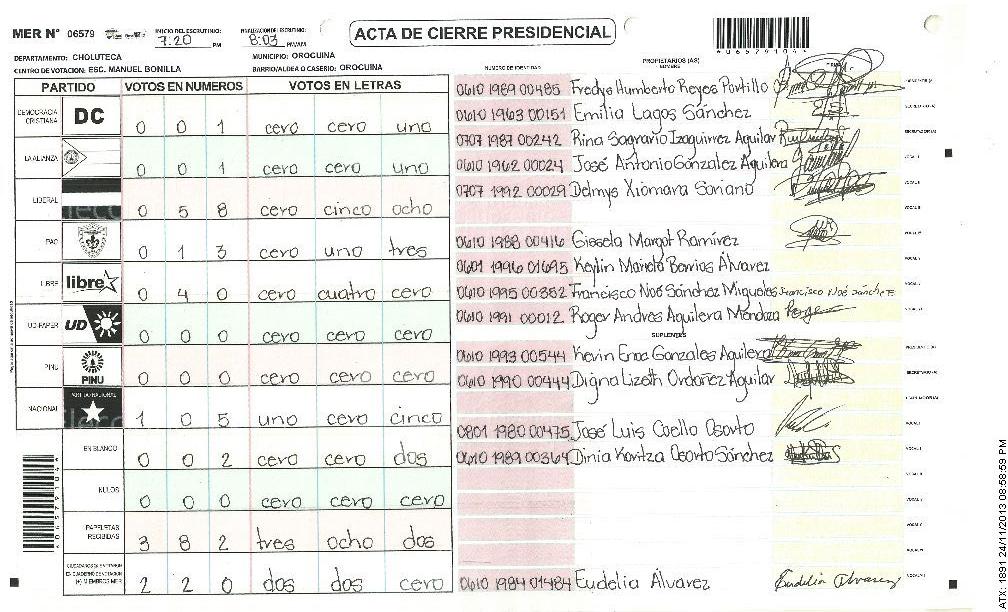 MER N° 06579 INICIO DEL ESCRUTINIO: 7:20 PM FINALIZACION DEL ESCRUTINIO: 8:03 PM/AM
ACTA DE CIERRE PRESIDENCIAL
DEPARTAMENTO: CHOLUTECA MUNICIPIO: OROCUINA
CENTRO DE VOTACION: ESC. MANUEL BONILLA BARRIO/ALDEA O CASERIO: OROCUINA
PARTIDO VOTOS EN NUMEROS VOTOS EN LETRAS
DEMOCRACIA CRISTIANA DC 0 0 1 cero cero uno
LA ALIANZA 0 0 1 cero cero uno
LIBERAL 0 5 8 cero cinco ocho
PAC 0 1 3 cero uno tres
LIBRE libre 0 4 0 cero cuatro cero
UD-FAPER UD 0 0 0 cero cero cero
PINU PINU 0 0 0 cero cero cero
NACIONAL PARTIDO NACIONAL 1 0 5 uno cero cinco
EN BLANCO 0 0 2 cero cero dos
NULOS 0 0 0 cero cero cero
PAPELETAS RECIBIDAS 3 8 2 tres ocho dos
(+) MIEMBROS MER 2 2 0 dos dos cero
NUMERO DE IDENTIDAD PROPIETARIOS (AS) NOMBRE FIRMA
0610 1989 00485 Fredys Humberto Reyes Portillo
0610 1963 00151 Emilia Lagos Sánchez
0707 1987 00242 Rina Sagrario Izaguirrez Aguilar
0610 1962 00024 José Antonio Gonzalez Aguilera
0707 1992 00029 Delmys Xiomara Soriano
0610 1988 00416 Gissela Margot Ramírez
0601 1996 01695 Keylin Mariela Barrios Álvarez
0610 1995 00352 Francisco Noé Sánchez Migueles Francisco Noé Sánchez
0610 1991 00012 Roger Andres Aguilera Mendoza Roger
SUPLENTES
0610 1993 00544 Kevin Enoc Gonzales Aguilera
0610 1990 00444 Digna Lizeth Ordoñez Aguilar
0801 1980 00475 José Luis Coello Osorto
0610 1989 00364 Dinia Karitza Osorto Sánchez
0610 1984 01484 Eudelia Álvarez Eudelia Alvarez
ATX: 1891 24/11/2013 08:58:59 PM